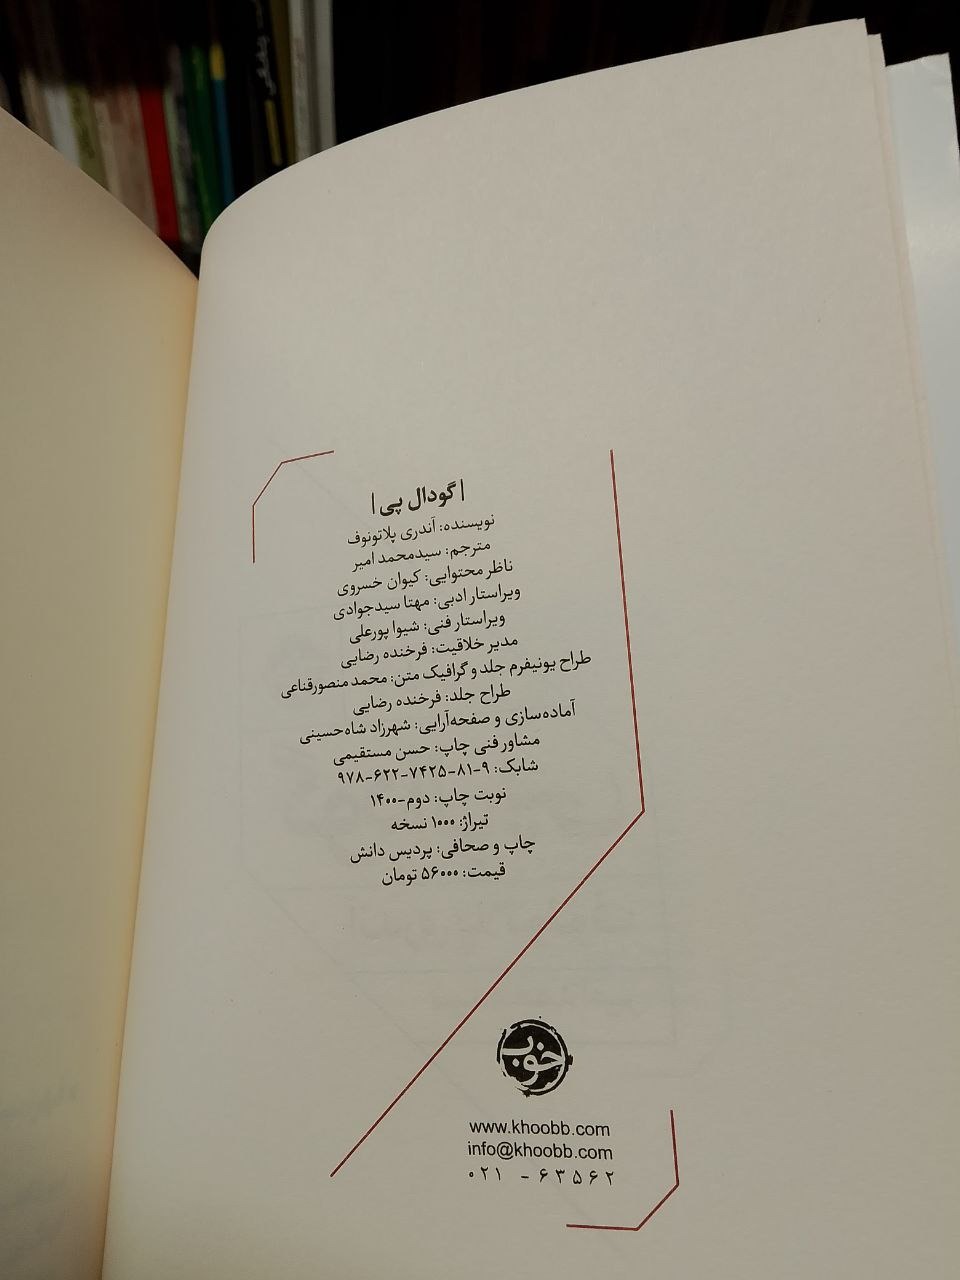 |گودال پی|
نویسنده: آندری پلاتونوف
مترجم: سیدمحمد امیر
ناظر محتوایی: کیوان خسروی
ویراستار ادبی: مهتا سیدجوادی
ویراستار فنی: شیوا پورعلی
مدیر خلاقیت: فرخنده رضایی
طراح یونیفرم جلد و گرافیک متن: محمد منصورقناعی
طراح جلد: فرخنده رضایی
آماده‌سازی و صفحه‌آرایی: شهرزاد شاه‌حسینی
مشاور فنی چاپ: حسن مستقیمی
شابک: ۹-۸۱-۷۴۲۵-۶۲۲-۹۷۸
نوبت چاپ: دوم-۱۴۰۰
تیراژ: ۱۰۰۰ نسخه
چاپ و صحافی: پردیس دانش
قیمت: ۵۶۰۰۰ تومان
خوب
www.khoobb.com
info@khoobb.com
۰۲۱ - ۶۳۵۶۲